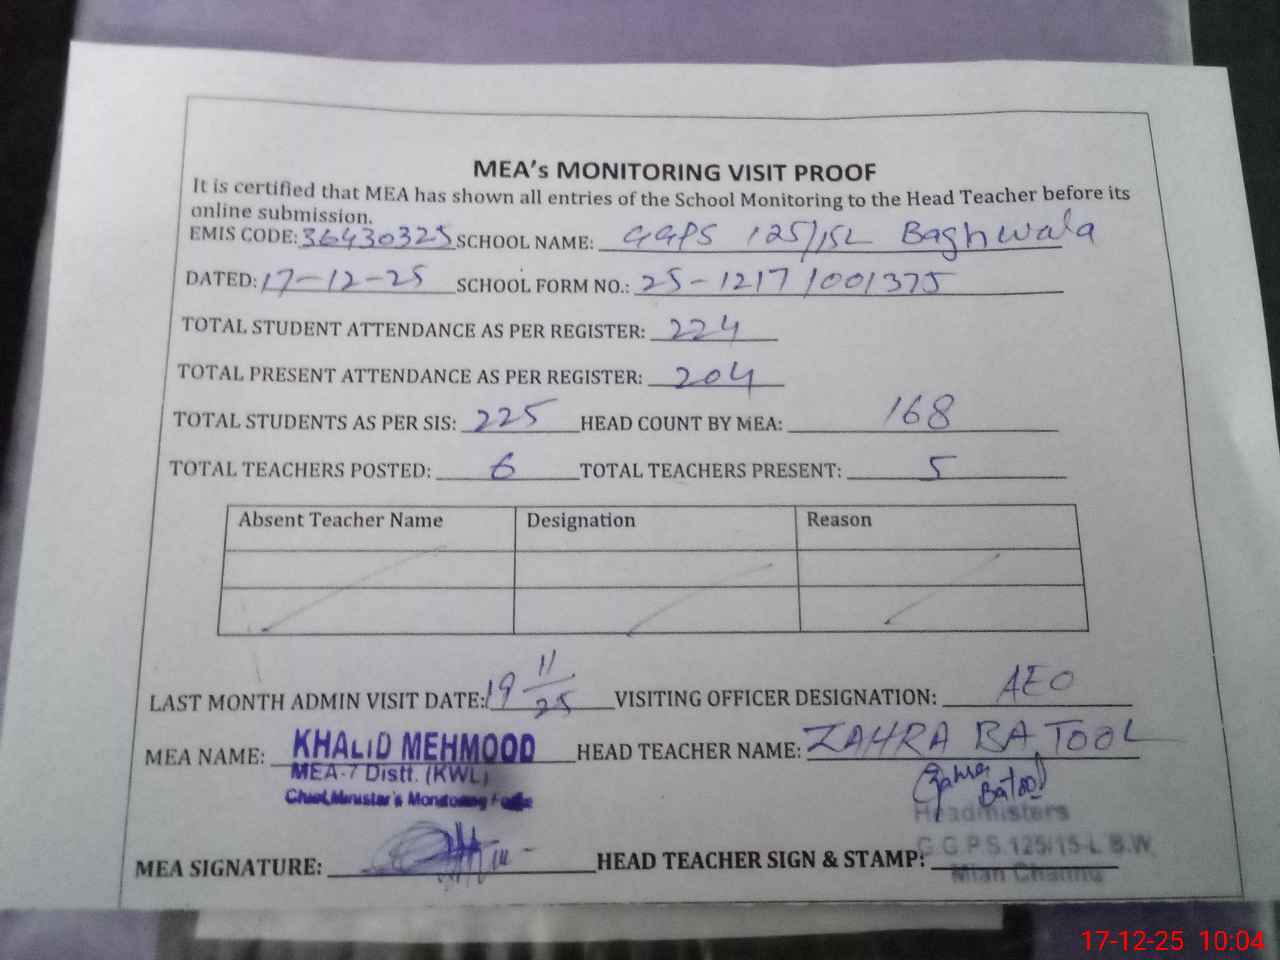 MEA's MONITORING VISIT PROOF
It is certified that MEA has shown all entries of the School Monitoring to the Head Teacher before its
online submission.
EMIS CODE: 36430325 SCHOOL NAME: GGPS 125/15L Baghwala
DATED: 17-12-25 SCHOOL FORM NO.: 25-1217/001375
TOTAL STUDENT ATTENDANCE AS PER REGISTER: 224
TOTAL PRESENT ATTENDANCE AS PER REGISTER: 204
TOTAL STUDENTS AS PER SIS: 225 HEAD COUNT BY MEA: 168
TOTAL TEACHERS POSTED: 6 TOTAL TEACHERS PRESENT: 5
Absent Teacher Name Designation Reason
LAST MONTH ADMIN VISIT DATE: 19 11/25 VISITING OFFICER DESIGNATION: AEO
MEA NAME: KHALID MEHMOOD HEAD TEACHER NAME: ZAHRA BATOOL
MEA-7 Distt. (KWL)
Chief Minister's Monitoring Force
Zahra Batool
Headmisters
MEA SIGNATURE: HEAD TEACHER SIGN & STAMP: G.G.P.S.125/15-L B.W
Mian Channu
17-12-25 10:04